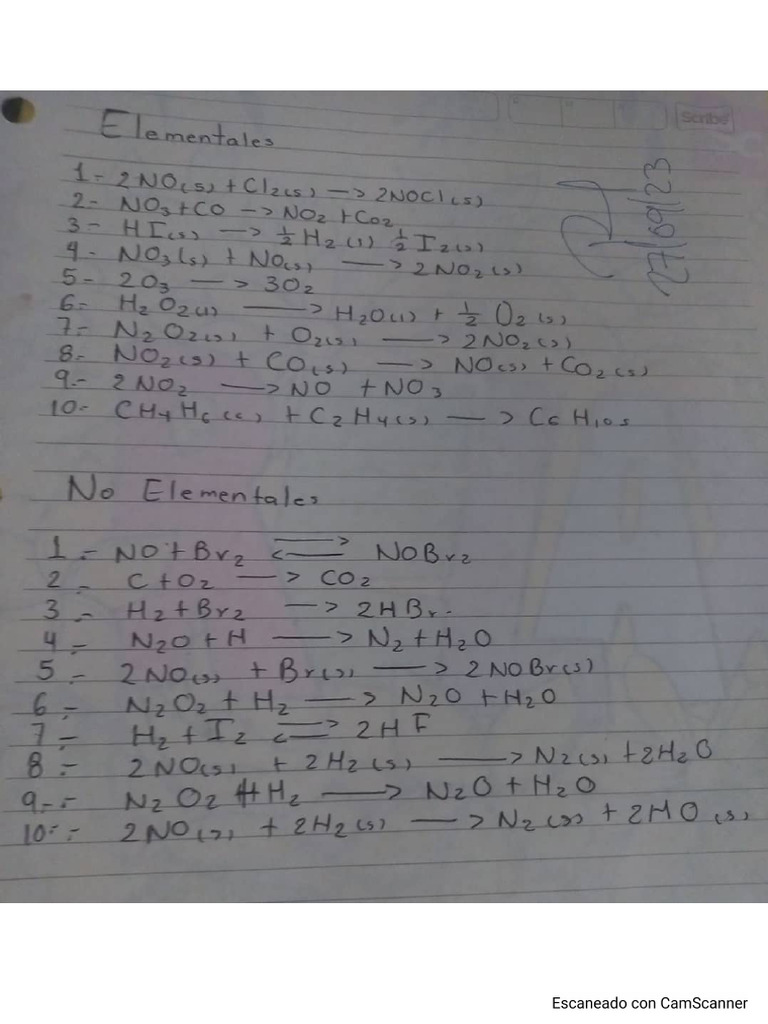 Scribe
Elementales
27/09/23
1- 2NO(s) + Cl2(s) —> 2NOCl(s)
2- NO3+CO —> NO2 +Co2
3- HI(s) —> 1/2 H2(s) 1/2 I2(s)
4- NO3(s) + NO(s) —> 2NO2(s)
5- 2O3 —> 3O2
6- H2O2(l) —> H2O(l) + 1/2 O2(s)
7- N2O2(s) + O2(s) —> 2NO2(s)
8- NO2(s) + CO(s) —> NO(s) + CO2(s)
9- 2NO2 —> NO + NO3
10- CH4H6(s) + C2H4(s) —> C6H10s
No Elementales
1- NO+Br2 ⇌ NOBr2
2- C+O2 —> CO2
3- H2+Br2 —> 2HBr.
4- N2O+H —> N2+H2O
5- 2NO(s) + Br(s) —> 2NOBr(s)
6- N2O2 + H2 —> N2O + H2O
7- H2+I2 ⇌ 2HF
8- 2NO(s) + 2H2(s) —> N2(s) +2H2O
9- N2O2 +H2 —> N2O + H2O
10- 2NO(s) + 2H2(s) —> N2(s) + 2HO(s)
Escaneado con CamScanner